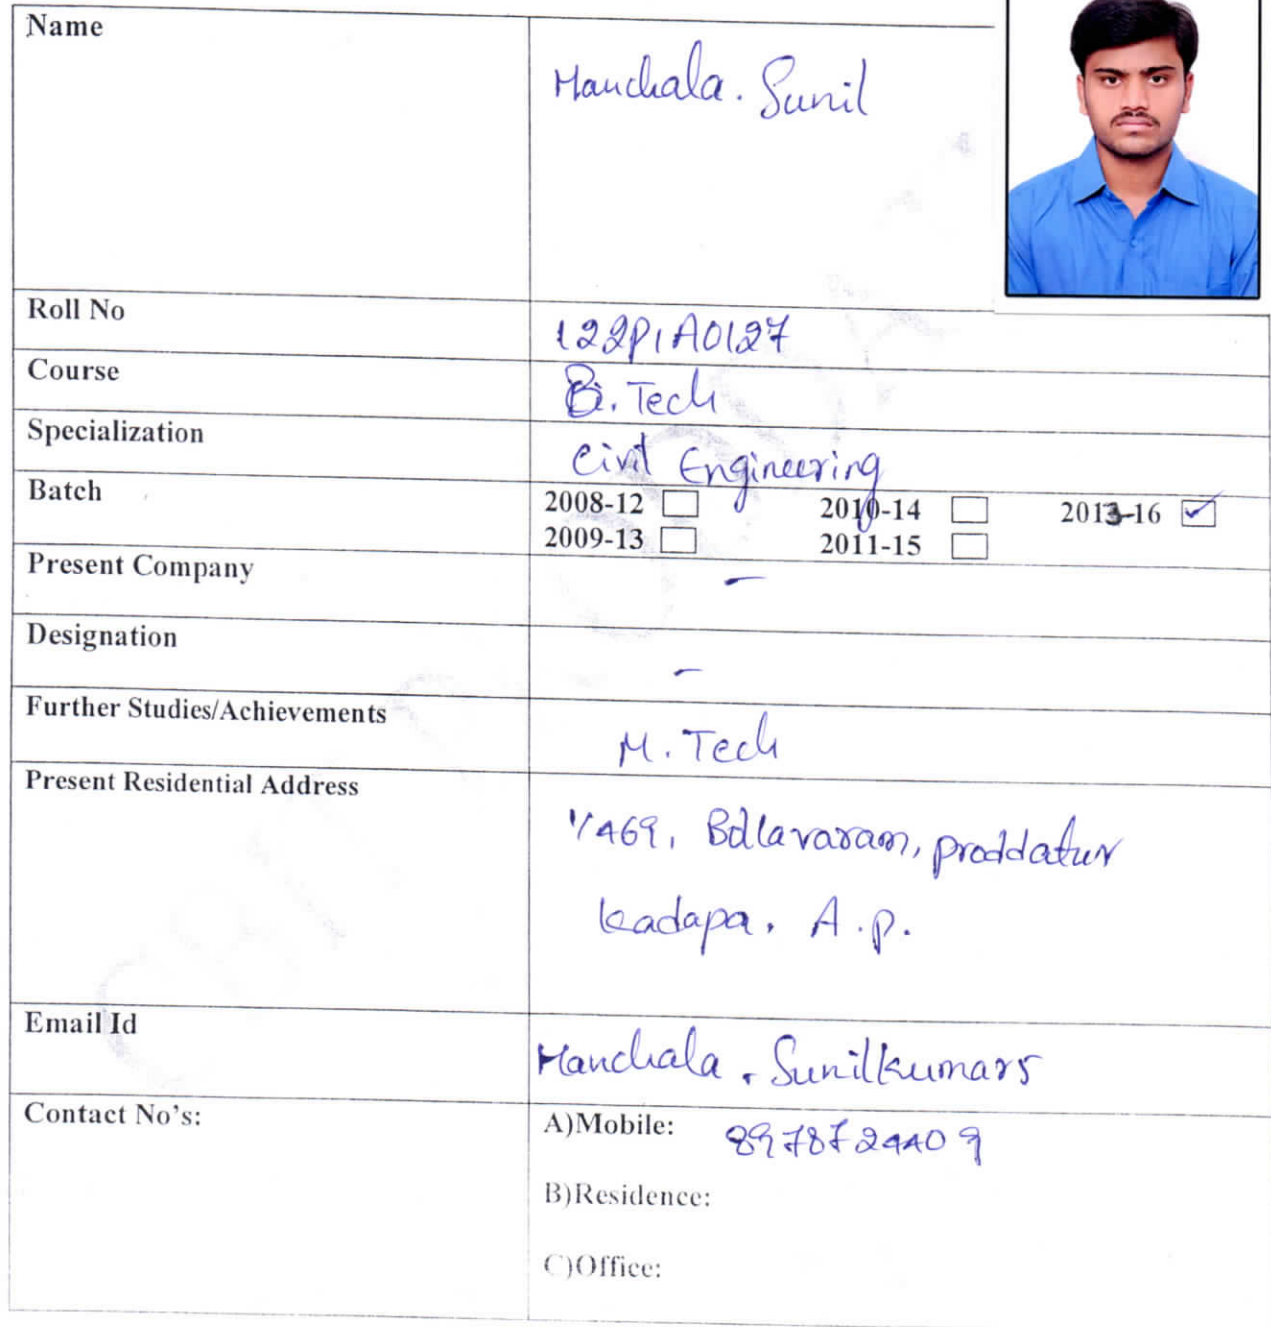 Name
Manchala. Sunil
Roll No
122P1A0127
Course
B. Tech
Specialization
Civil Engineering
Batch
2008-12 2010-14 2013-16 ✓
2009-13 2011-15
Present Company
–
Designation
–
Further Studies/Achievements
M. Tech
Present Residential Address
1/469, Bollavaram, proddatur
kadapa. A.p.
Email Id
Manchala.Sunilkumar5
Contact No's:
A)Mobile: 8978724409
B)Residence:
C)Office: